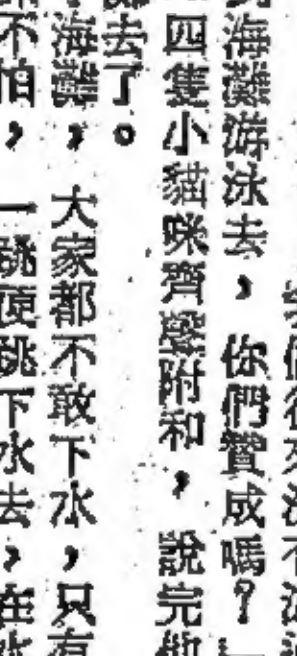 海灘游泳去，你們贊成嗎？
四隻小貓咪齊聲附和，說完
去了。
海灘，大家都不敢下水，只有
不怕，一跳便跳下水去，在